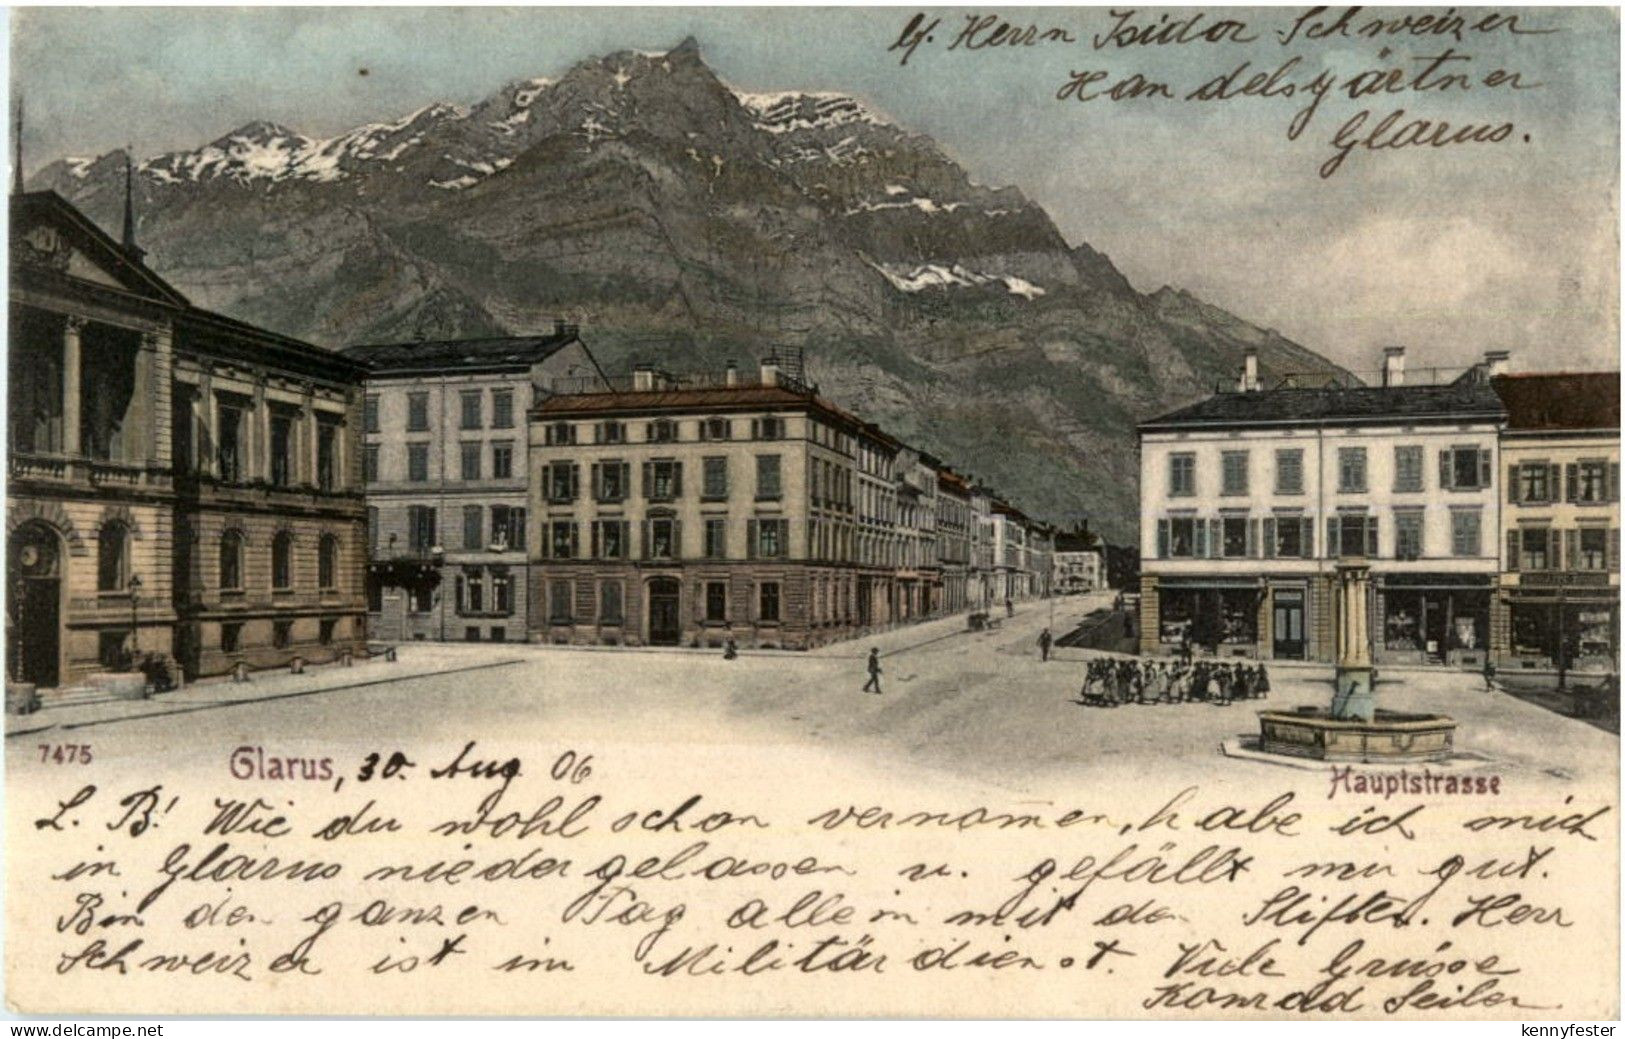 bf. Herrn Isidor Schweizer
Handelsgärtner
Glarus.
7475
Glarus, 30. Aug 06
Hauptstrasse
L. B.! Wie du wohl schon vernom̅en, habe ich mich
in Glarus niedergelassen u. gefällt mir gut.
Bin den ganzen Tag allein mit den Stiften. Herr
Schweizer ist im Militärdienst. Viele Grüsse
Konrad Seiler.
www.delcampe.net
kennyfester